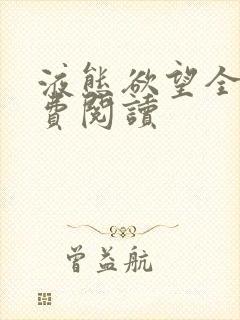 液態欲望全
費閱讀
曾益航